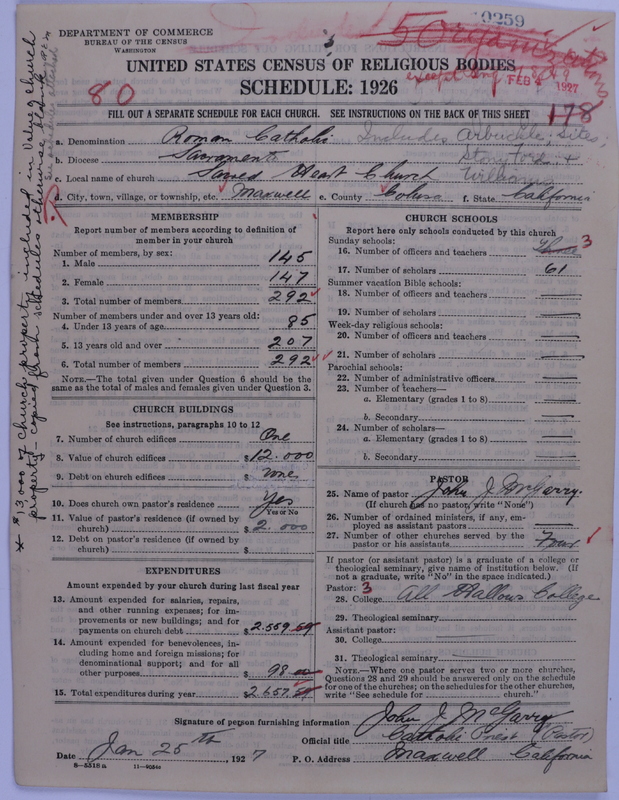 DEPARTMENT OF COMMERCE
BUREAU OF THE CENSUS
WASHINGTON
9259
5 Organizations
except
FEB 4 1927
UNITED STATES CENSUS OF RELIGIOUS BODIES
SCHEDULE: 1926
80
178
FILL OUT A SEPARATE SCHEDULE FOR EACH CHURCH. SEE INSTRUCTIONS ON THE BACK OF THIS SHEET
a. Denomination Roman Catholic Includes Arbuckle, Sites,
b. Diocese Sacramento Stonyford +
c. Local name of church Sacred Heart Church Williams
d. City, town, village, or township, etc. Maxwell e. County Colusa f. State California
MEMBERSHIP
Report number of members according to definition of
member in your church
Number of members, by sex:
1. Male 145
2. Female 147
3. Total number of members 292
Number of members under and over 13 years old:
4. Under 13 years of age 85
5. 13 years old and over 207
6. Total number of members 292
NOTE.—The total given under Question 6 should be
same as the total of males and females given under Question 3.
CHURCH BUILDINGS
See instructions, paragraphs 10 to 12
7. Number of church edifices One
8. Value of church edifices $12.000
9. Debt on church edifices $ none
10. Does church own pastor's residence Yes
Yes or No
11. Value of pastor's residence (if owned by
church) $2.000
12. Debt on pastor's residence (if owned by
church) $
EXPENDITURES
Amount expended by your church during last fiscal year
13. Amount expended for salaries, repairs,
and other running expenses; for im-
provements or new buildings; and for
payments on church debt $2.559.59
14. Amount expended for benevolences, in-
cluding home and foreign missions; for
denominational support; and for all
other purposes $ 98.00
15. Total expenditures during year $2657.59
CHURCH SCHOOLS
Report here only schools conducted by this church
Sunday schools:
16. Number of officers and teachers Three 3
17. Number of scholars 61
Summer vacation Bible schools:
18. Number of officers and teachers
19. Number of scholars
Week-day religious schools:
20. Number of officers and teachers
21. Number of scholars
Parochial schools:
22. Number of administrative officers
23. Number of teachers—
a. Elementary (grades 1 to 8)
b. Secondary
24. Number of scholars—
a. Elementary (grades 1 to 8)
b. Secondary
PASTOR
25. Name of pastor John J. McGarry.
(If church has no pastor, write "None")
26. Number of ordained ministers, if any, em-
ployed as assistant pastors
27. Number of other churches served by the
pastor or his assistants Four
If pastor (or assistant pastor) is a graduate of a college or
theological seminary, give name of institution below. (If
not a graduate, write "No" in the space indicated.)
Pastor: 3
28. College All Hallows College
29. Theological seminary
Assistant pastor:
30. College
31. Theological seminary
NOTE.—Where one pastor serves two or more churches,
Questions 28 and 29 should be answered only on the schedule
for one of the churches; on the schedules for the other churches,
write "See schedule for church."
Signature of person furnishing information John J. McGarry
Official title Catholic Priest (Pastor)
Date Jan 25th, 1927 P. O. Address Maxwell California
8—5518a 11—9056a
* $13,000 of church property included in Value of church
property – copied from schedules otherwise blank